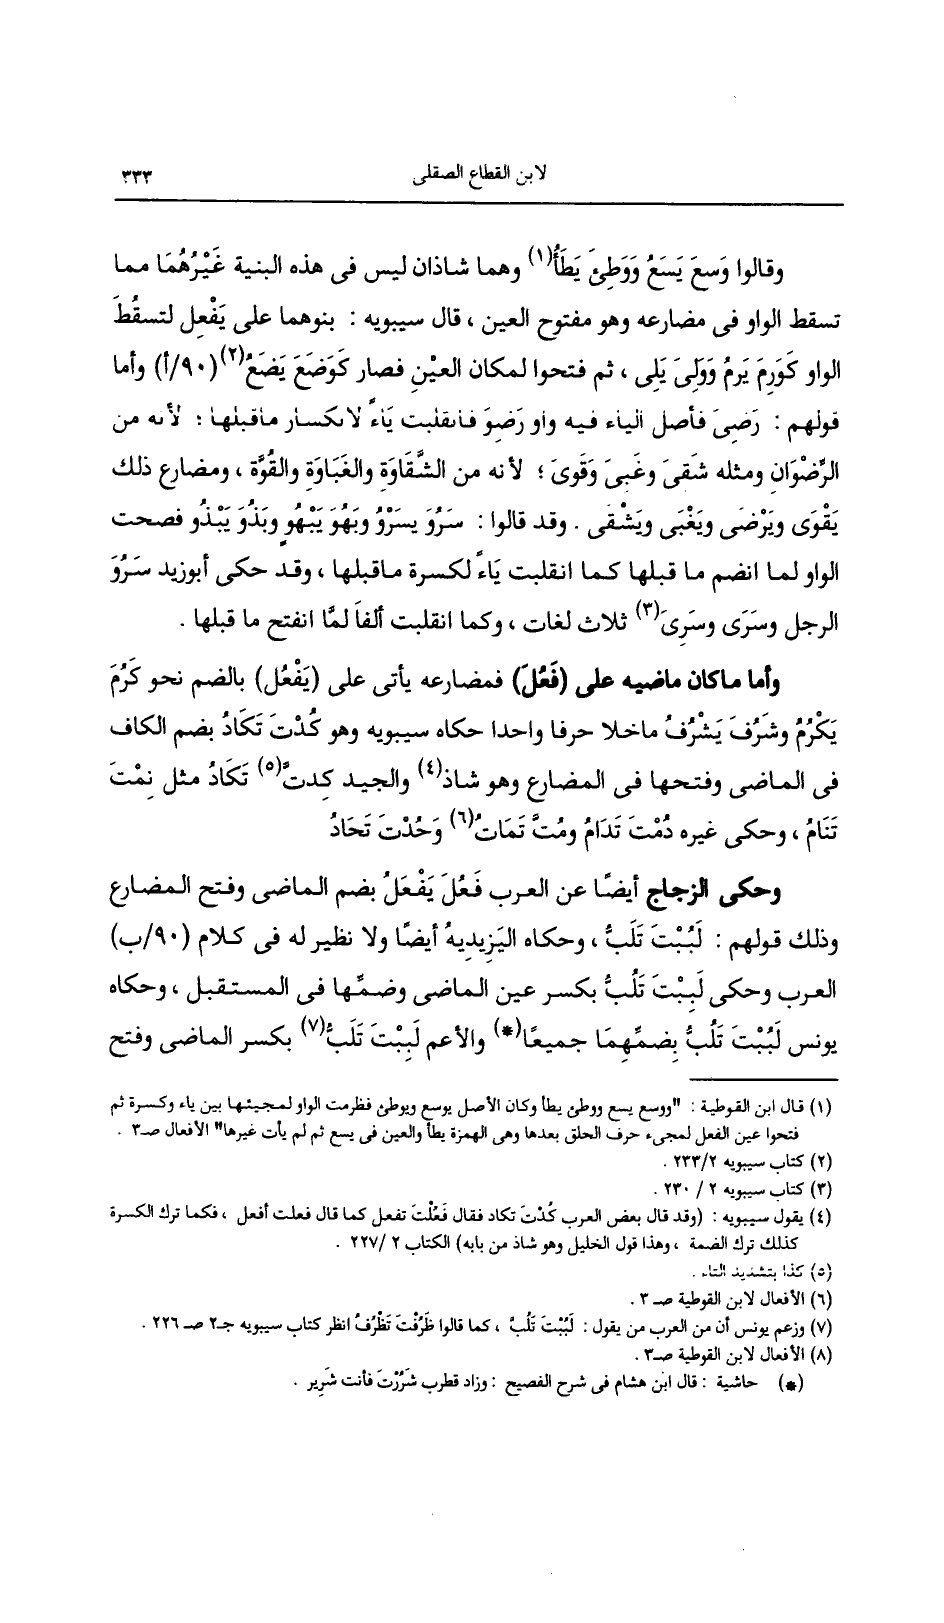 لابن القطاع الصقلى ٣٣٣
وقالوا وَسِعَ يَسَعُ وَوَطِئَ يَطَأُ(١) وهما شاذان ليس فى هذه البنية غَيْرُهُمَا مما
تسقط الواو فى مضارعه وهو مفتوح العين ، قال سيبويه : بنوهما على يَفْعِل لتسقُطَ
الواو كَوَرِمَ يَرِمُ وَوَلِىَ يَلِى ، ثم فتحوا لمكان العيْنِ فصار كَوَضَعَ يَضَعُ(٢) (٩٠/أ) وأما
قولهم : رَضِىَ فأصل الياء فيه واو رَضِوَ فانقلبت يَاءً لانكسار ماقبلها ؛ لأنه من
الرِّضْوَانِ ومثله شَقىَ وغَبىَ وَقَوىَ ؛ لأنه من الشَّقَاوَةِ والغَبَاوَةِ والقُوَّة ، ومضارع ذلك
يَقْوَى ويَرْضى ويَغْبَى ويَشْقى . وقد قالوا : سَرُوَ يسَرْوُ وبَهُوَ يَبْهُو وبَذُوَ يَبْذُو فصحت
الواو لما انضم ما قبلها كما انقلبت يَاءً لكسرة ماقبلها ، وقد حكى أبوزيد سَرُوَ
الرجل وسَرَى وسَرِىَ(٣) ثلاث لغات ، وكما انقلبت ألفاً لمَّا انفتح ما قبلها .
وأما ماكان ماضيه على (فَعُلَ) فمضارعه يأتى على (يَفْعُل) بالضم نحو كَرُمَ
يَكْرُمُ وشَرُفَ يَشْرُفُ ماخلا حرفا واحدا حكاه سيبويه وهو كُدْتَ تَكَادُ بضم الكاف
فى الماضى وفتحها فى المضارع وهو شاذ(٤) والجيد كِدتَّ(٥) تَكَادُ مثل نِمْتَ
تَنَامُ ، وحكى غيره دُمْتَ تَدَامُ ومُتَّ تَمَاتُ(٦) وَحُدْتَ تَحَادُ
وحكى الزجاج أيضًا عن العرب فَعُلَ يَفْعَلُ بضم الماضى وفتح المضارع
وذلك قولهم : لَبُبْتَ تَلَبُّ ، وحكاه اليَزِيديهُ أيضًا ولا نظير له فى كلام (٩٠/ب)
العرب وحكى لَبِبْتَ تَلُبُّ بكسر عين الماضى وضمِّها فى المستقبل ، وحكاه
يونس لَبُبْتَ تَلُبُّ بِضمِّهِمَا جميعًا(*) والأعم لَبِبْتَ تَلَبُّ(٧) بكسر الماضى وفتح
(١) قال ابن القوطية : "ووسع يسع ووطئ يطأ وكان الأصل يوسع ويوطئ فظرمت الواو لمجيئها بين ياء وكسرة ثم
فتحوا عين الفعل لمجىء حرف الحلق بعدها وهى الهمزة يطأ والعين فى يسع ثم لم يأت غيرها" الأفعال صـ٣ .
(٢) كتاب سيبويه ٢٣٣/٢ .
(٣) كتاب سيبويه ٢ / ٢٣٠ .
(٤) يقول سيبويه : (وقد قال بعض العرب كُدْتَ تكاد فقال فَعُلْتَ تفعل كما قال فعلت أفعل ، فكما ترك الكسرة
كذلك ترك الضمة ، وهذا قول الخليل وهو شاذ من بابه) الكتاب ٢ /٢٢٧ .
(٥) كذا بتشديد التاء .
(٦) الأفعال لابن القوطية صـ ٣ .
(٧) وزعم يونس أن من العرب من يقول : لَبُبْتَ تَلُبُّ ، كما قالوا ظَرُفْتَ تَظْرُفُ انظر كتاب سيبويه جـ٢ صـ ٢٢٦ .
(٨) الأفعال لابن القوطية صـ٣ .
(*) حاشية : قال ابن هشام فى شرح الفصيح : وزاد قطرب شَرُرْتَ فأنت شَرِير .